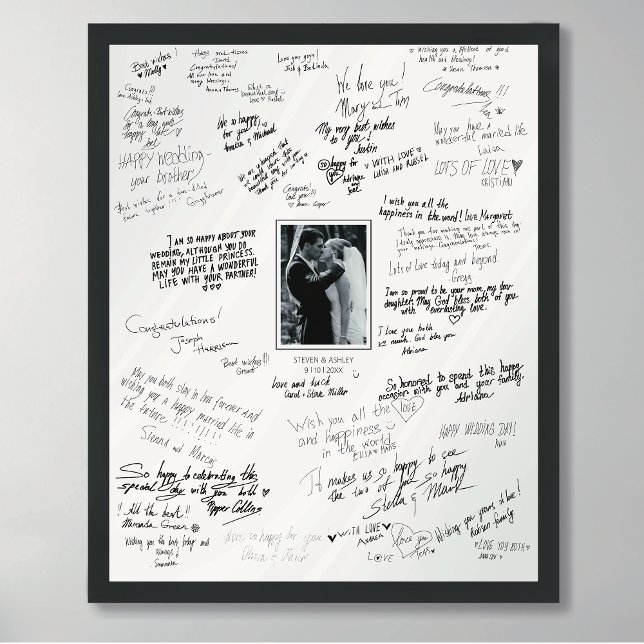 Best wishes!
♥ Molly
Congratulations!
Love you guys!
Josh & Belinda
wishing you a lifetime of good
health and blessings!
We love you!
Mary & Tim
Congratulations!!!
So happy
for you
Amelia & Michael
My very best wishes
to you!
Justin
May you have a
wonderful married life
Luisa
HAPPY wedding
your brother
SO happy for
you
♥ WITH LOVE
LUISA AND RUSSEL
LOTS OF LOVE
CRISTIAN
Congrats!
love you!!!
I wish you all the
happiness in the word! love Margaret
I AM SO HAPPY ABOUT YOUR
WEDDING, ALTHOUGH YOU DO
REMAIN MY LITTLE PRINCESS.
MAY YOU HAVE A WONDERFUL
LIFE WITH YOUR PARTNER!
♡♡♡
Thank you for making me part of this day.
Lots of Love today and beyond.
Gregg
I am so proud to be your mom, my dear
daughter. May God bless both of you
with everlasting love.
I love you both
so much. God bless you
Adriana
Congratulations!
Joseph
Harrison
Best wishes!!!
Grant
STEVEN & ASHLEY
9 | 10 | 20XX
love and luck
Carol & Steve Miller
So honored to spend this happy
occasion with you and your family.
Adriana
May you both stay in love forever and
wishing you a happy married life in
the future!!!!!!!
Sienna and Marcus
Wish you all the love
and happiness
in the world
ELISA & HANS
HAPPY WEDDING DAY!
ANN
It makes us so happy to see
the two of you so happy
Stella & Mark
So happy to celebrating the
special day with you both ♥
Pepper Collins
All the best!!
Miranda Green
Wishing you the best today and
always!
Samantha
so happy for you
♥ WITH LOVE
ANDREA
LOVE
I love you
Wishing you years of love!
family
♥ LOVE YOU BOTH ♥